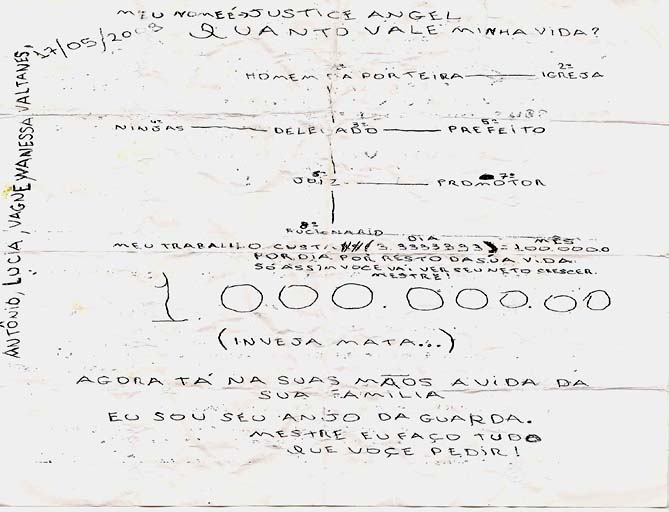 MEU NOMEÉ JUSTICE ANGEL
QUANTO VALE MINHA VIDA?
17/05/2009
ANTÔNIO, LÚCIA, VAGNE, WANESSA, VALTANES,
1º 2º
HOMEM DA PORTEIRA IGREJA
4º 3º 6º
NINJAS DELEGADO PREFEITO
5º 7º
JUIZ PROMOTOR
8º
FUCIONARIO
DIA MÊS
MEU TRABALHO CUSTA (3.3333393) = 100.000.0
POR DIA POR RESTO DA SUA VIDA.
SÓ ASSIM VOCE VAI VER SEU NETO CRESCER.
MESTRE!
1.000.000.00
(INVEJA MATA...)
AGORA TÁ NA SUAS MÃOS A VIDA DA
SUA FAMILIA
EU SOU SEU ANJO DA GUARDA.
MESTRE EU FAÇO TUDO
QUE VOÇE PEDIR!